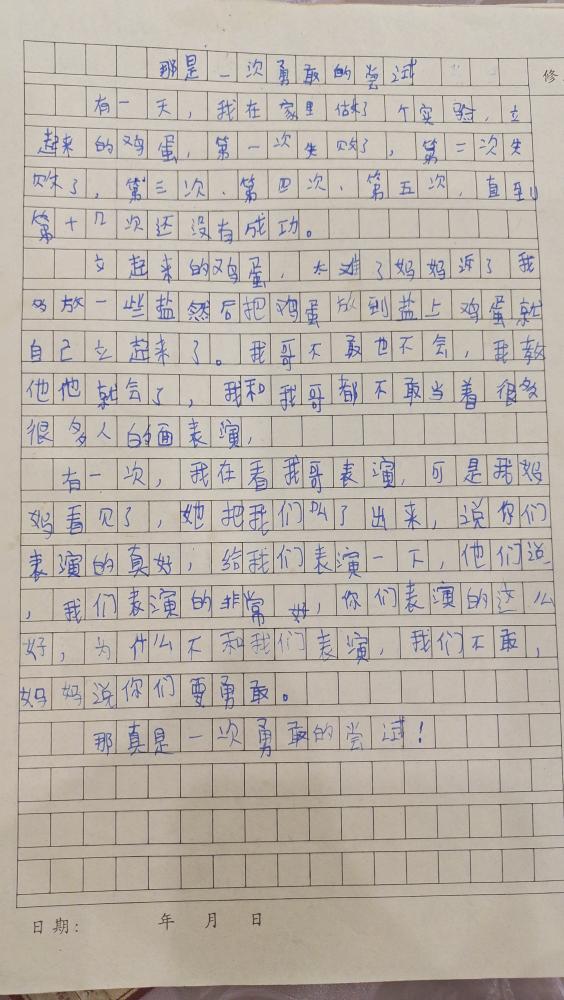 那是一次勇敢的尝试
修
有一天，我在家里做了个实验，立
起来的鸡蛋，第一次失败了，第二次失
败了，第三次、第四次、第五次，直到
第十几次还没有成功。
立起来的鸡蛋，太难了妈妈派了我
妈放一些盐然后把鸡蛋放到盐上鸡蛋就
自己立起来了。我哥不敢也不会，我教
他他就会了，我和我哥都不敢当着很多
很多人的面表演，
有一次，我在看我哥表演，可是我妈
妈看见了，她把我们叫了出来，说你们
表演的真好，给我们表演一下，他们说
，我们表演的非常好，你们表演的这么
好，为什么不和我们表演，我们不敢，
妈妈说你们要勇敢。
那真是一次勇敢的尝试！
日期： 年 月 日